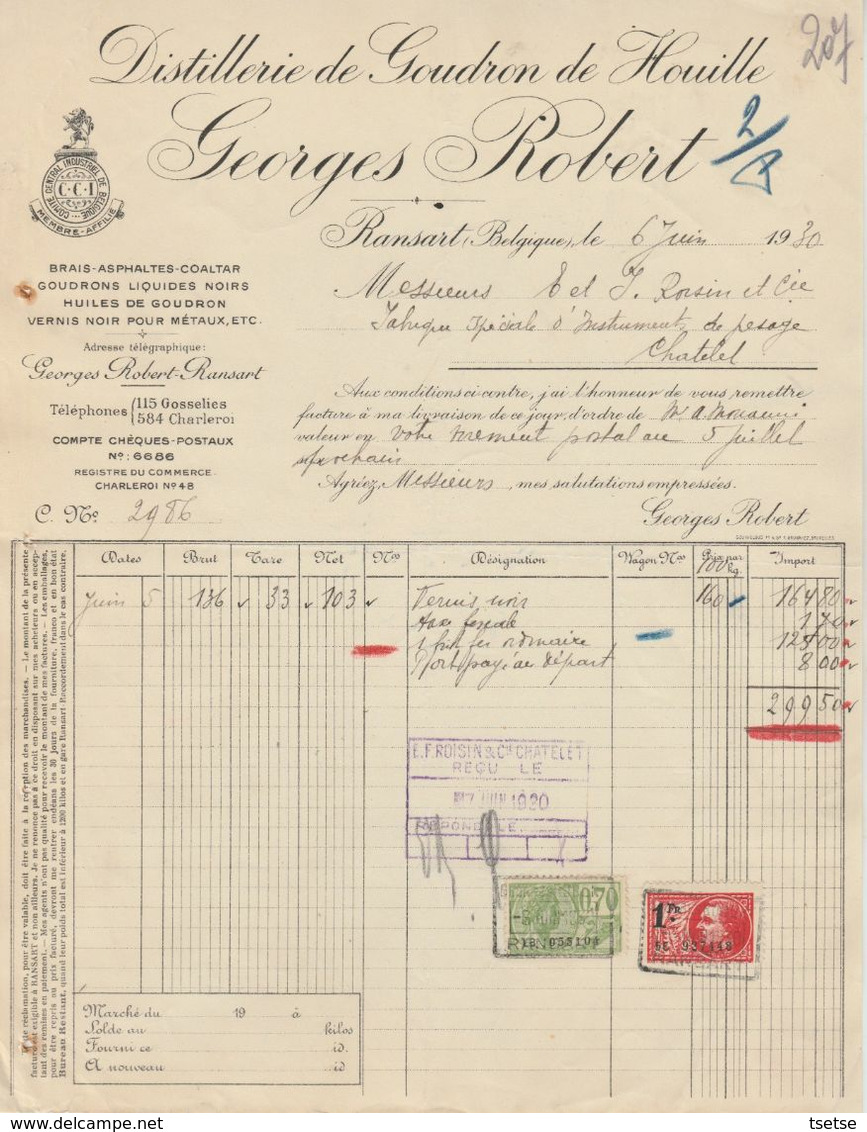 207
Distillerie de Goudron de Houille
Georges Robert
2/8
COMITÉ CENTRAL INDUSTRIEL DE BELGIQUE
C.C.I
MEMBRE-AFFILIÉ
Ransart (Belgique), le 6 Juin 1930
BRAIS-ASPHALTES-COALTAR
GOUDRONS LIQUIDES NOIRS
HUILES DE GOUDRON
VERNIS NOIR POUR MÉTAUX, ETC.
Messieurs E et F. Roisin et Cie
Fabrique Spéciale d'Instruments de pesage
Chatelet
Adresse télégraphique:
Georges Robert-Ransart
Téléphones 115 Gosselies
584 Charleroi
COMPTE CHÈQUES-POSTAUX
No: 6686
REGISTRE DU COMMERCE
CHARLEROI No 48
C. No 2986
Aux conditions ci-contre, j'ai l'honneur de vous remettre
facture à ma livraison de ce jour, d'ordre de Mr A.
valeur en votre virement postal au 5 juillet
prochain
Agréez, Messieurs, mes salutations empressées.
Georges Robert
Dates Brut Tare Net Nos Désignation Wagon Nos Prix par 100 kg. Import
Juin 5 136 33 103 Vernis noir 160 164 80
Taxe fiscale 1 70
1 fût fer ordinaire 125 00
Port payé au départ 8 00
299 50
E.F. ROISIN & Cie CHATELET
REÇU LE
7 JUIN 1930
RÉPONDU LE
0,70
RANSART
1B 055104
1 FR
6C 937148
RANSART
Toute réclamation, pour être valable, doit être faite à la réception des marchandises. — Le montant de la présente
facture est exigible à RANSART et non ailleurs. Je ne renonce pas à ce droit en disposant sur mes acheteurs ou en accep-
tant des remises en paiement. — Mes agents n'ont pas qualité pour recevoir le montant de mes factures. — Les emballages,
pour être repris au prix facturé, devront me rentrer endéans les 30 jours de la fourniture, franco et en bon état
Bureau Restant, quand leur poids total est inférieur à 1200 kilos et en gare Ransart-Raccordement dans le cas contraire.
Marché du 19 à
Solde au kilos
Fourni ce id.
A nouveau id
tsetse